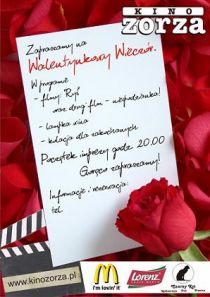 KINO
zorza
Zapraszamy na
Walentynkowy Wieczór.
W programie
- filmy Ryś
oraz drugi film - niespodzianka!
- lampka wina
- kolacja dla zakochanych
Początek imprezy godz 20.00
Gorąco zapraszamy!
Informacje i rezerwacja:
tel.
www.kinozorza.pl
M
i'm lovin' it
Lorenz
Czarny Kot